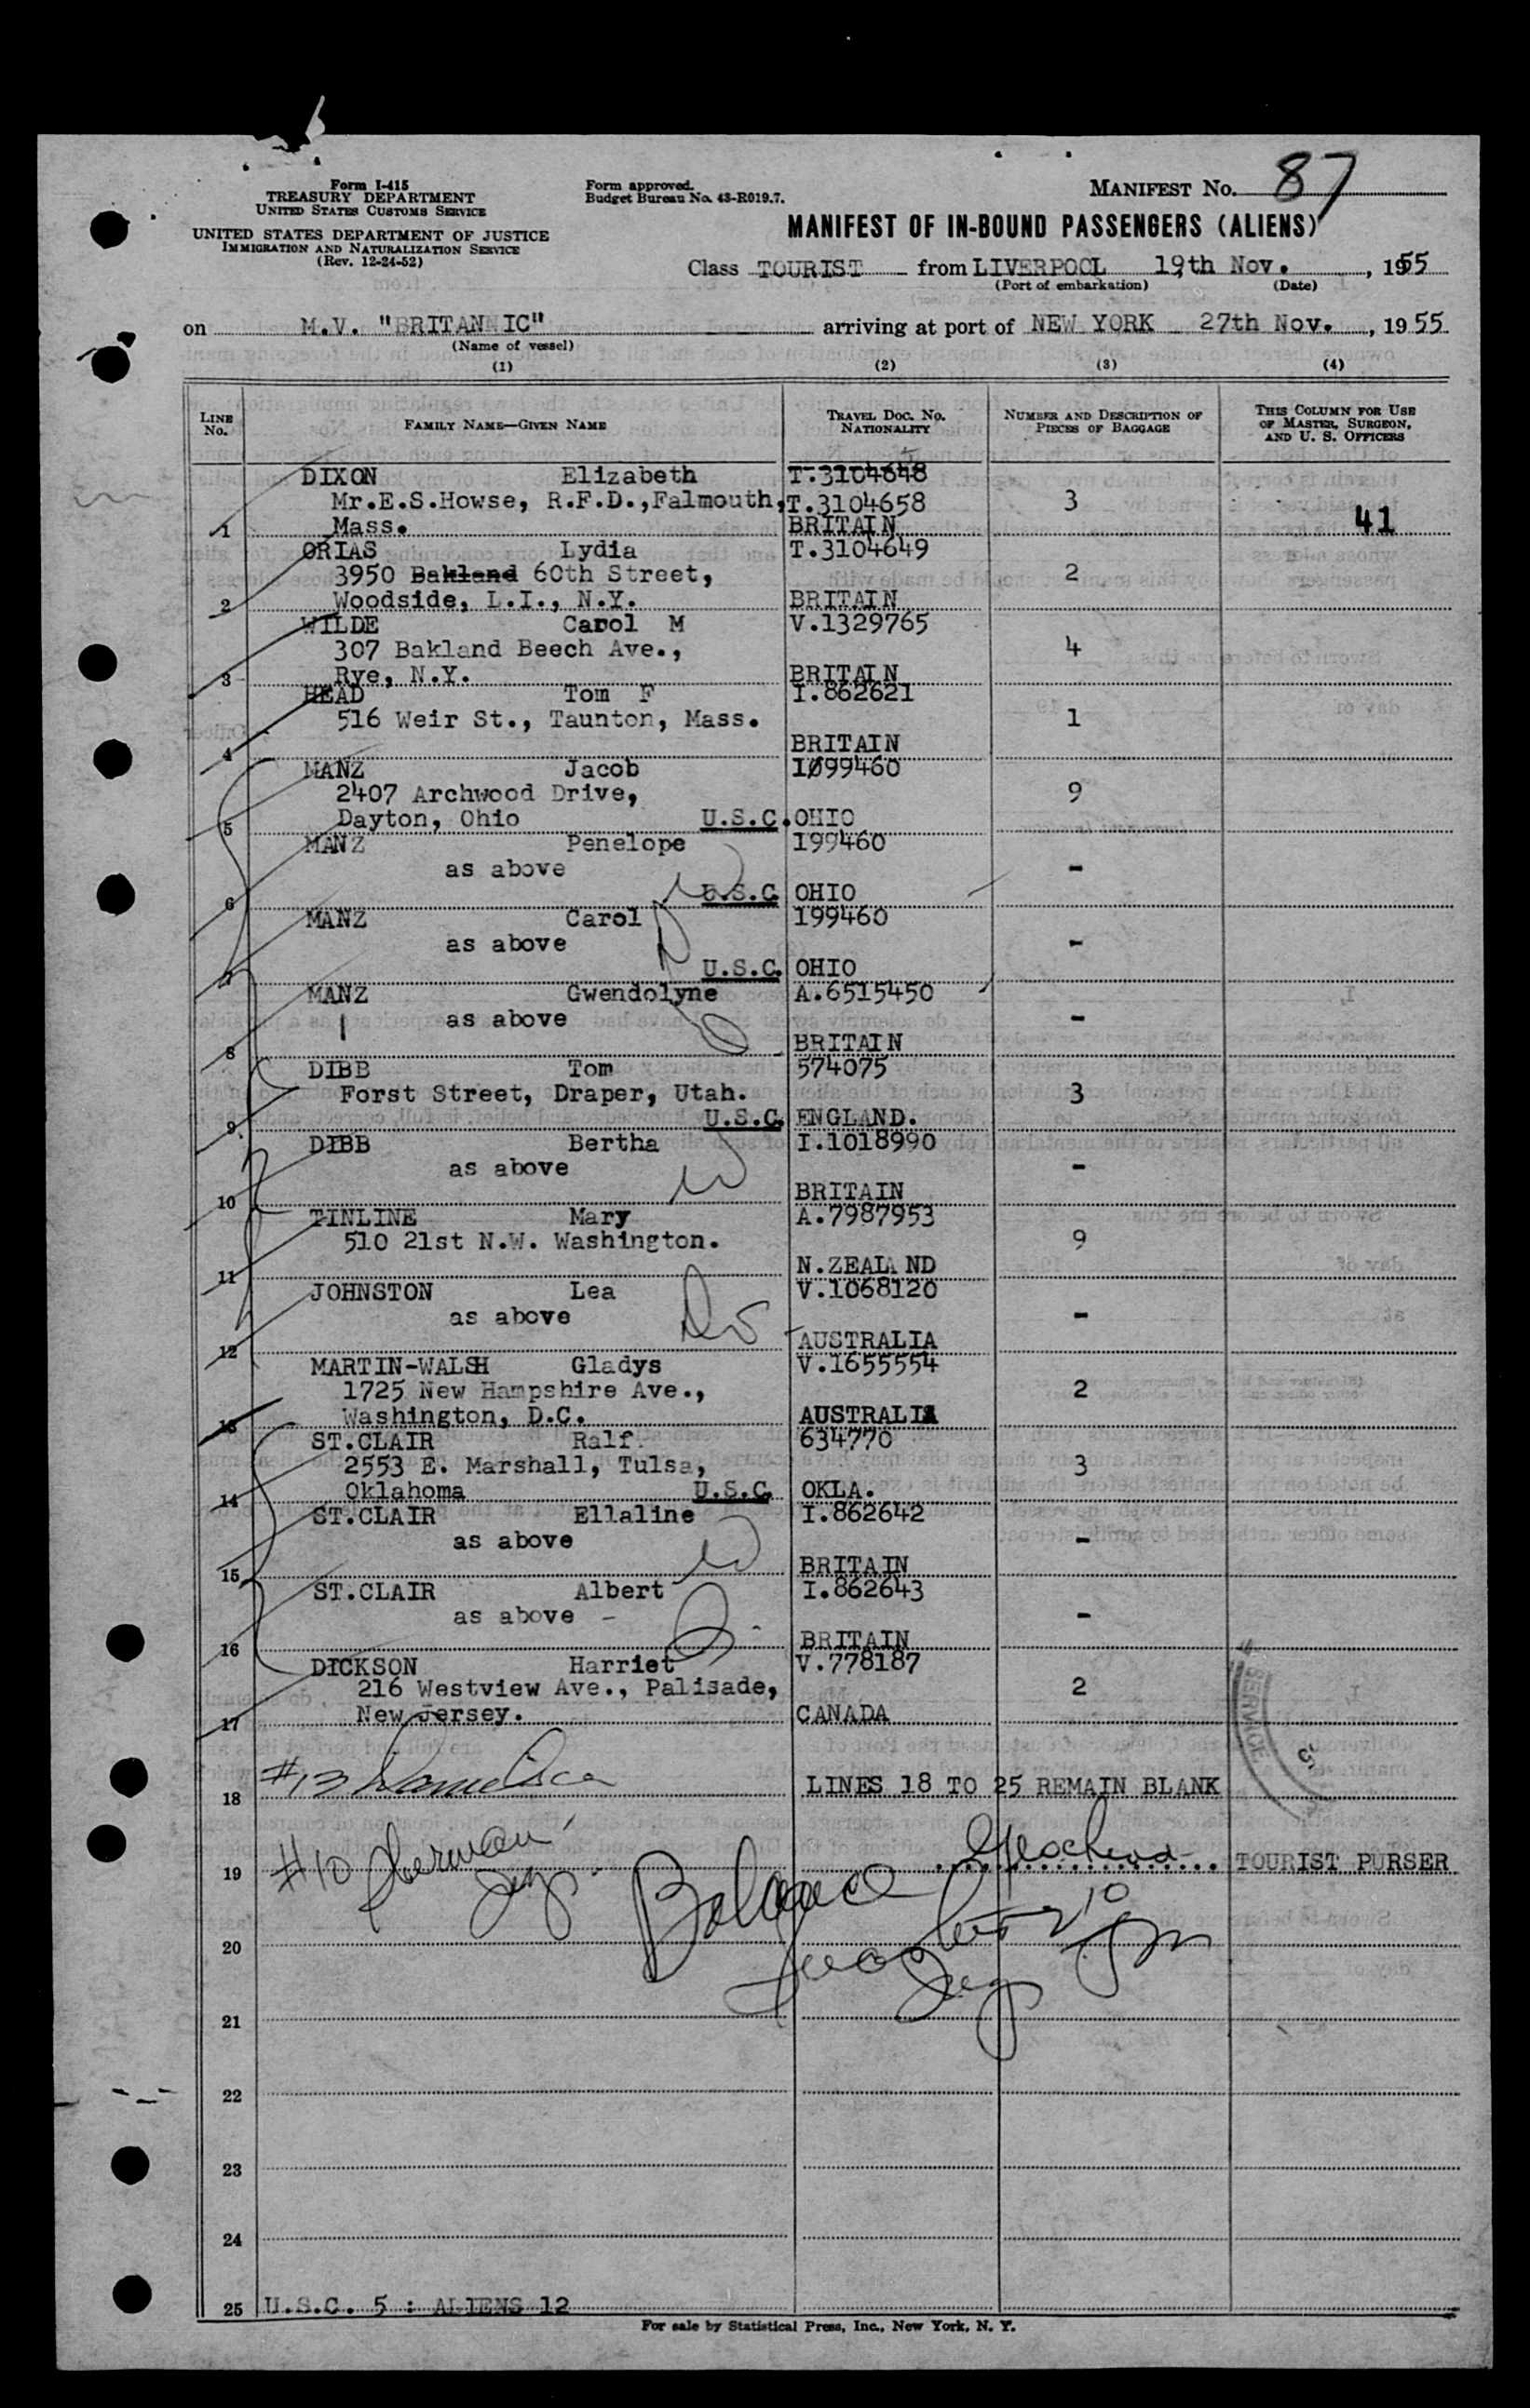 Form I-415
TREASURY DEPARTMENT
UNITED STATES CUSTOMS SERVICE
UNITED STATES DEPARTMENT OF JUSTICE
IMMIGRATION AND NATURALIZATION SERVICE
(Rev. 12-24-52)
Form approved.
Budget Bureau No. 43-R019.7.
MANIFEST NO. 87
MANIFEST OF IN-BOUND PASSENGERS (ALIENS)
Class TOURIST from LIVERPOOL 19th Nov., 1955
(Port of embarkation) (Date)
on M.V. "BRITANNIC" arriving at port of NEW YORK 27th Nov., 1955
(Name of vessel)
(1) (2) (3) (4)
LINE No. FAMILY NAME—GIVEN NAME TRAVEL DOC. NO. NATIONALITY NUMBER AND DESCRIPTION OF PIECES OF BAGGAGE THIS COLUMN FOR USE OF MASTER, SURGEON, AND U. S. OFFICERS
DIXON Elizabeth T.3104648
Mr.E.S.Howse, R.F.D.,Falmouth, T.3104658 3
1 Mass. BRITAIN 41
ORIAS Lydia T.3104649
3950 Bakland 60th Street, 2
2 Woodside, L.I., N.Y. BRITAIN
WILDE Carol M V.1329765
307 Bakland Beech Ave., 4
3 Rye, N.Y. BRITAIN
HEAD Tom F I.862621
516 Weir St., Taunton, Mass. 1
4 BRITAIN
MANZ Jacob 1099460
2407 Archwood Drive, 9
5 Dayton, Ohio U.S.C. OHIO
MANZ Penelope 199460
as above -
6 U.S.C. OHIO
MANZ Carol 199460
as above -
7 U.S.C. OHIO
MANZ Gwendolyne A.6515450
as above -
8 BRITAIN
DIBB Tom 574075
Forst Street, Draper, Utah. 3
9 U.S.C. ENGLAND.
DIBB Bertha I.1018990
as above -
10 BRITAIN
TINLINE Mary A.7987953
510 21st N.W. Washington. 9
11 N.ZEALAND
JOHNSTON Lea V.1068120
as above -
12 AUSTRALIA
MARTIN-WALSH Gladys V.1655554
1725 New Hampshire Ave., 2
13 Washington, D.C. AUSTRALIA
ST.CLAIR Ralf. 634770
2553 E. Marshall, Tulsa, 3
14 Oklahoma U.S.C. OKLA.
ST.CLAIR Ellaline I.862642
as above -
15 BRITAIN
ST.CLAIR Albert I.862643
as above - -
16 BRITAIN
DICKSON Harriet V.778187
216 Westview Ave., Palisade, 2
17 New Jersey. CANADA
SERVICE
#13
18 LINES 18 TO 25 REMAIN BLANK
#10 Sherman
19 TOURIST PURSER
Balance
20
21
22
23
24
25 U.S.C. 5 : ALIENS 12
For sale by Statistical Press, Inc., New York, N. Y.